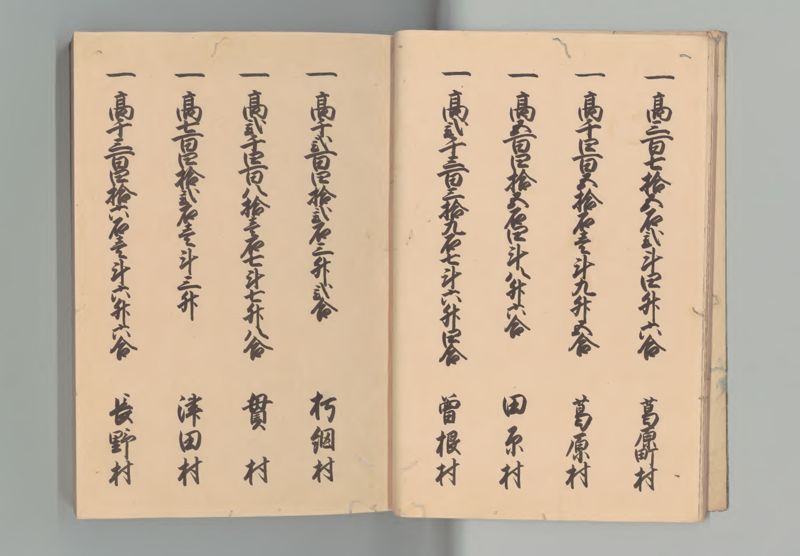 一高三百七拾五石弐斗四升六合 葛原町村
一高千四百五拾石壱斗九升五合 葛原村
一高五百四拾五石四斗八升六合 田原村
一高弐千三百三拾九石七斗六升四合 曽根村
一高千弐百四拾弐石三升弐合 朽網村
一高弐千四百八拾壱石七斗七升八合 貫村
一高七百四拾弐石壱斗三升 津田村
一高千三百四拾六石壱斗六升六合 長野村